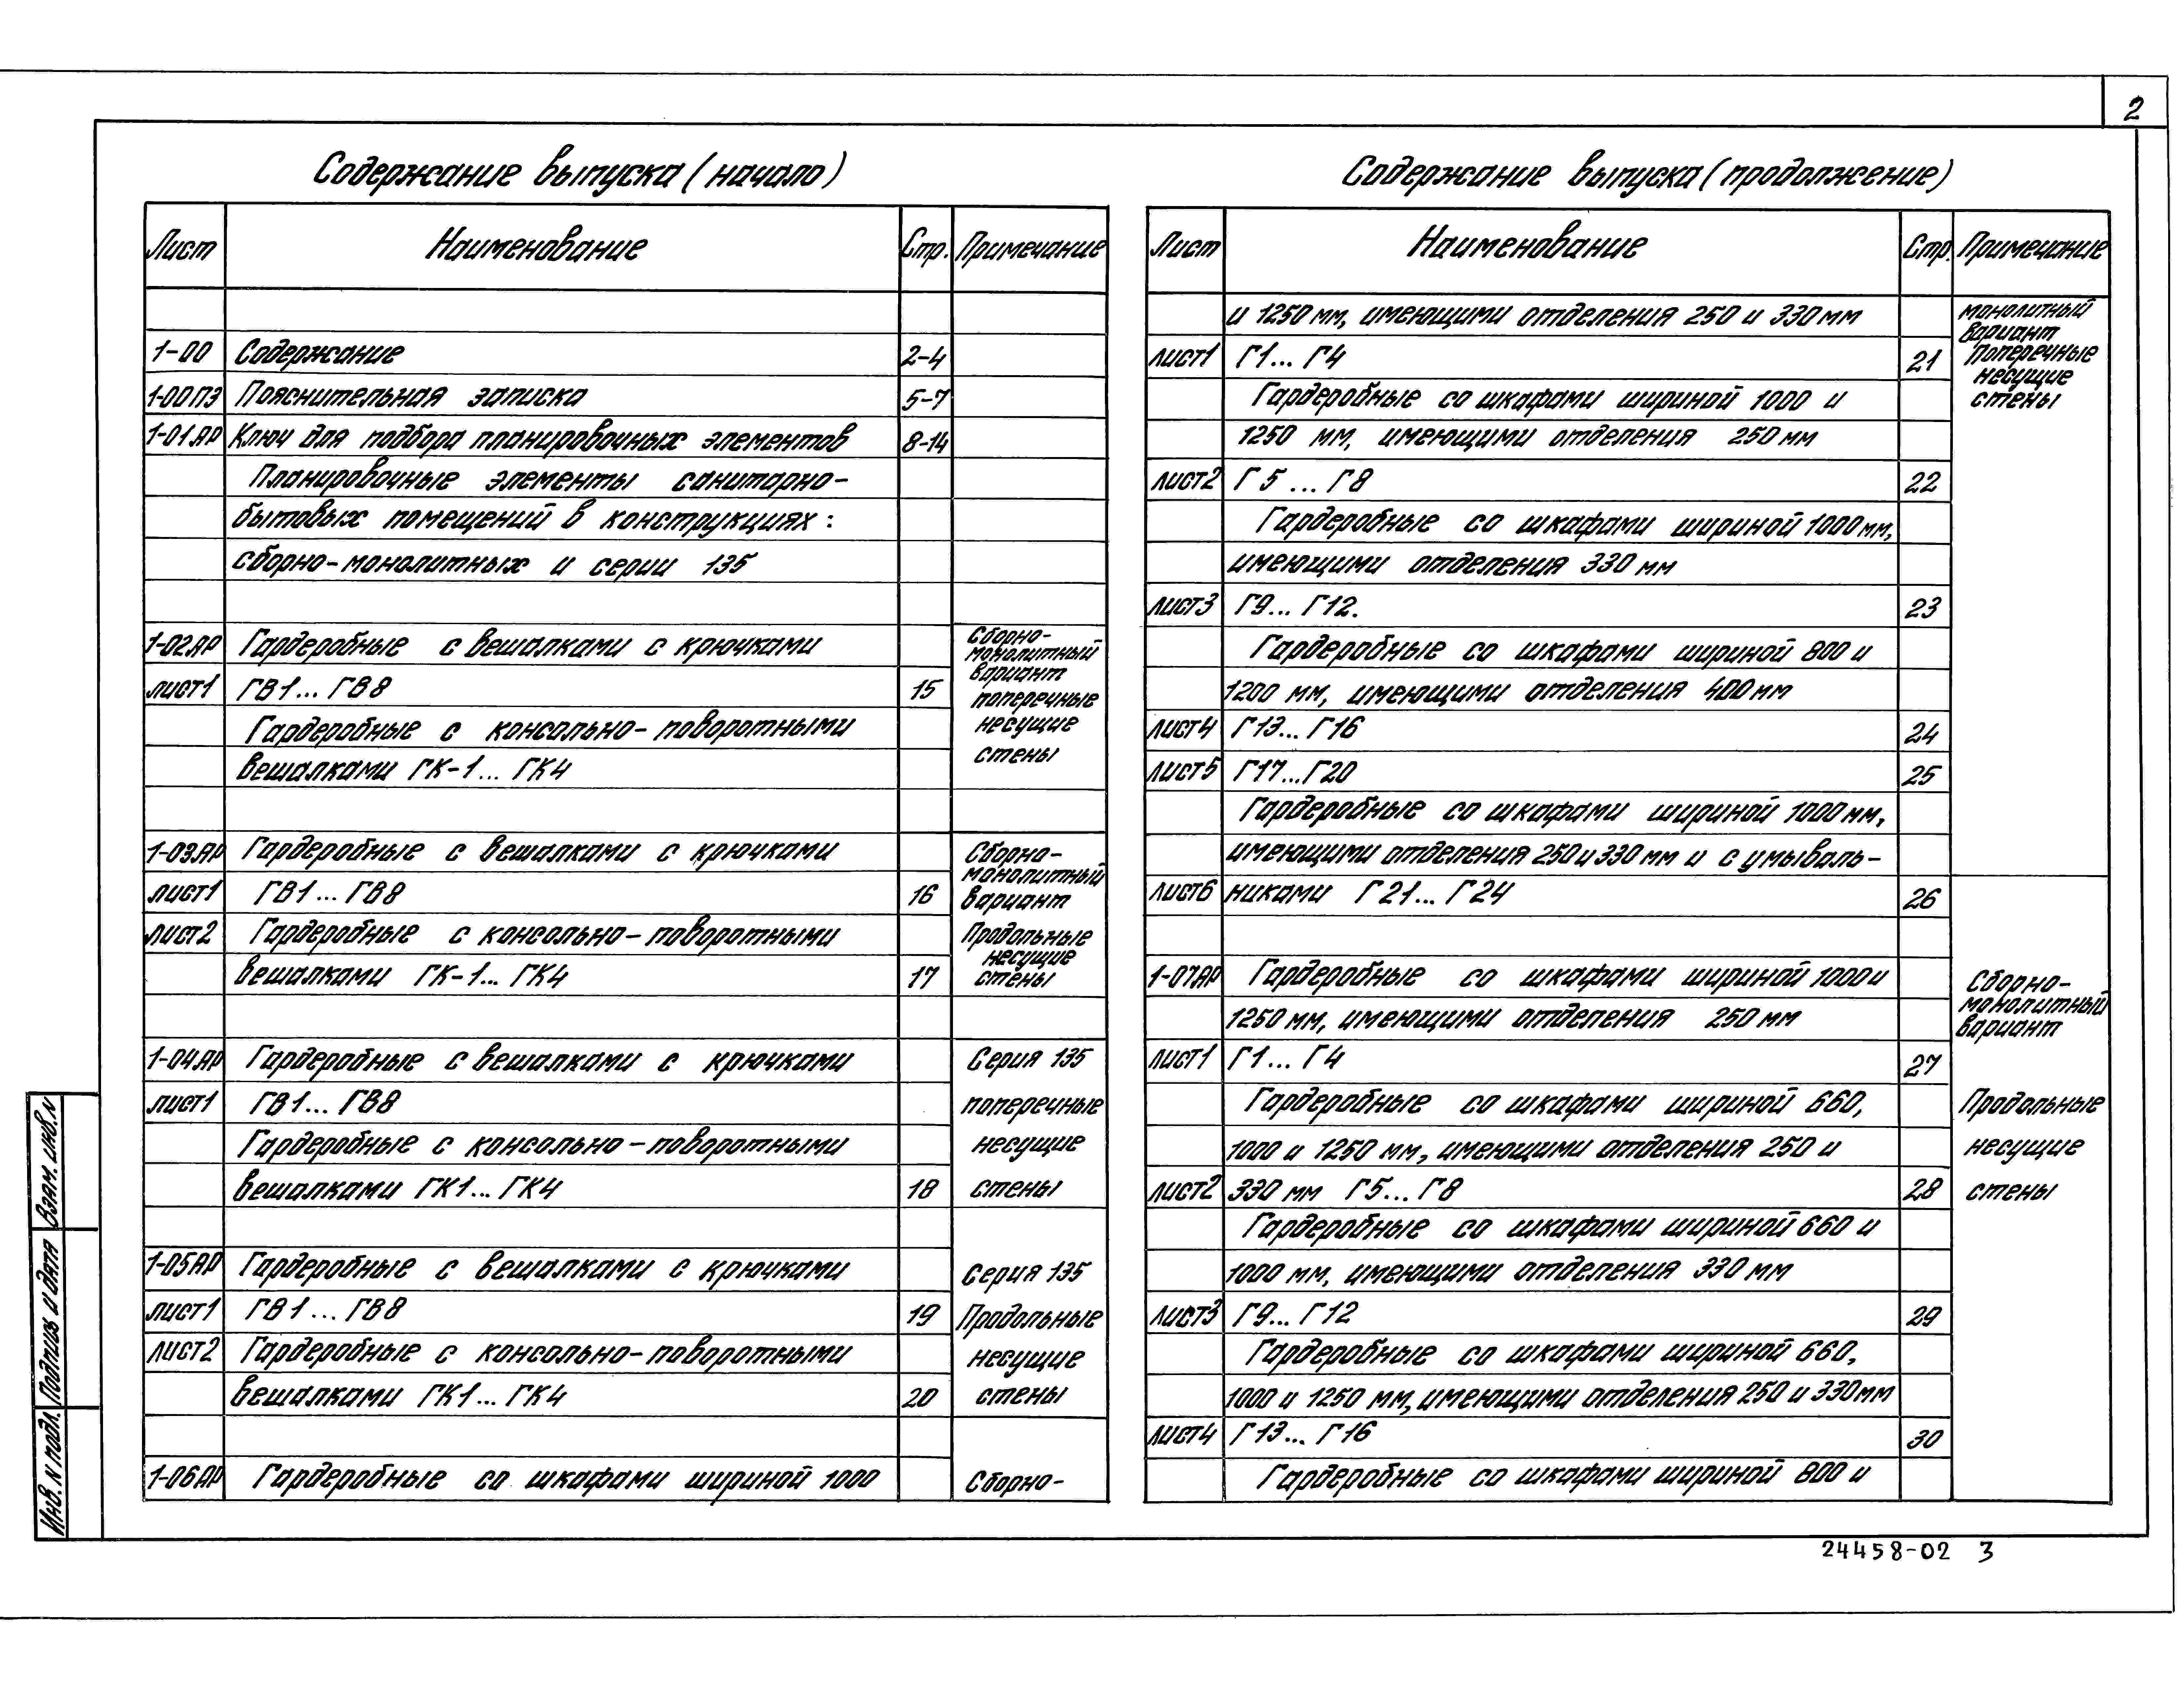 2
Содержание выпуска (начало)
Лист Наименование Стр. Примечание
1-00 Содержание 2-4
1-00ПЗ Пояснительная записка 5-7
1-01АР Ключ для подбора планировочных элементов 8-14
Планировочные элементы санитарно-
бытовых помещений в конструкциях:
сборно-монолитных и серии 135
1-02АР Гардеробные с вешалками с крючками Сборно-
монолитный
вариант
лист1 ГВ1... ГВ8 15 поперечные
Гардеробные с консольно-поворотными несущие
вешалками ГК-1... ГК4 стены
1-03АР Гардеробные с вешалками с крючками Сборно-
монолитный
лист1 ГВ1... ГВ8 16 вариант
лист2 Гардеробные с консольно-поворотными Продольные
несущие
вешалками ГК-1... ГК4 17 стены
1-04АР Гардеробные с вешалками с крючками Серия 135
лист1 ГВ1... ГВ8 поперечные
Гардеробные с консольно-поворотными несущие
вешалками ГК1... ГК4 18 стены
1-05АР Гардеробные с вешалками с крючками Серия 135
лист1 ГВ1... ГВ8 19 Продольные
лист2 Гардеробные с консольно-поворотными несущие
вешалками ГК1... ГК4 20 стены
1-06АР Гардеробные со шкафами шириной 1000 Сборно-
Содержание выпуска (продолжение)
Лист Наименование Стр. Примечание
и 1250 мм, имеющими отделения 250 и 330 мм монолитный
вариант
лист1 Г1... Г4 21 Поперечные
несущие
Гардеробные со шкафами шириной 1000 и стены
1250 мм, имеющими отделения 250 мм
лист2 Г5... Г8 22
Гардеробные со шкафами шириной 1000 мм,
имеющими отделения 330 мм
лист3 Г9... Г12. 23
Гардеробные со шкафами шириной 800 и
1200 мм, имеющими отделения 400 мм
лист4 Г13... Г16 24
лист5 Г17...Г20 25
Гардеробные со шкафами шириной 1000 мм,
имеющими отделения 250 и 330 мм и с умываль-
лист6 никами Г21... Г24 26
1-07АР Гардеробные со шкафами шириной 1000 и Сборно-
монолитный
1250 мм, имеющими отделения 250 мм вариант
лист1 Г1... Г4 27
Гардеробные со шкафами шириной 660, Продольные
1000 и 1250 мм, имеющими отделения 250 и несущие
лист2 330 мм Г5... Г8 28 стены
Гардеробные со шкафами шириной 660 и
1000 мм, имеющими отделения 330 мм
лист3 Г9... Г12 29
Гардеробные со шкафами шириной 660,
1000 и 1250 мм, имеющими отделения 250 и 330 мм
лист4 Г13... Г16 30
Гардеробные со шкафами шириной 800 и
Инв. N подл. Подпись и дата Взам. инв. N
24458-02 3